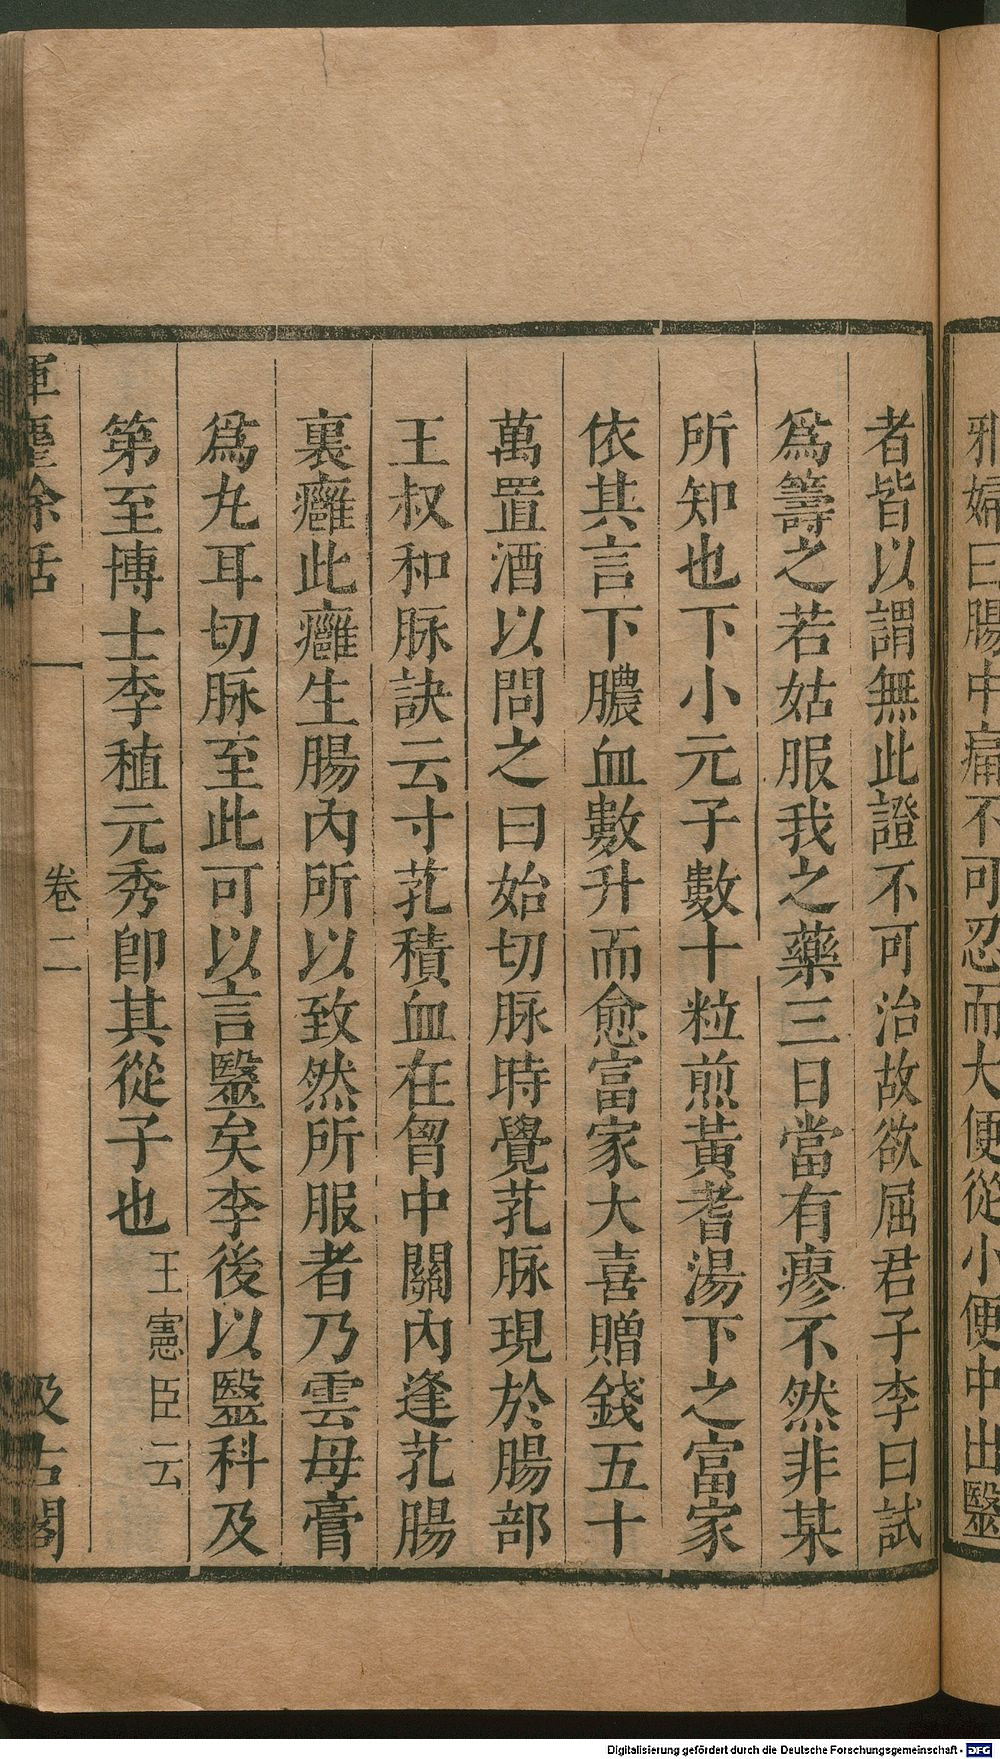 邪婦曰腸中痛不可忍而大便從小便中出醫
者皆以謂無此證不可治故欲屈君子李曰試
爲籌之若姑服我之藥三日當有瘳不然非某
所知也下小元子數十粒煎黃耆湯下之富家
依其言下膿血數升而愈富家大喜贈錢五十
萬置酒以問之曰始切脉時覺芤脉現於腸部
王叔和脉訣云寸芤積血在胷中關內逢芤腸
裏癰此癰生腸內所以致然所服者乃雲母膏
爲丸耳切脉至此可以言醫矣李後以醫科及
第至博士李植元秀卽其從子也 王憲臣云
揮麈餘話
卷二
汲古閣
Digitalisierung gefördert durch die Deutsche Forschungsgemeinschaft - DFG